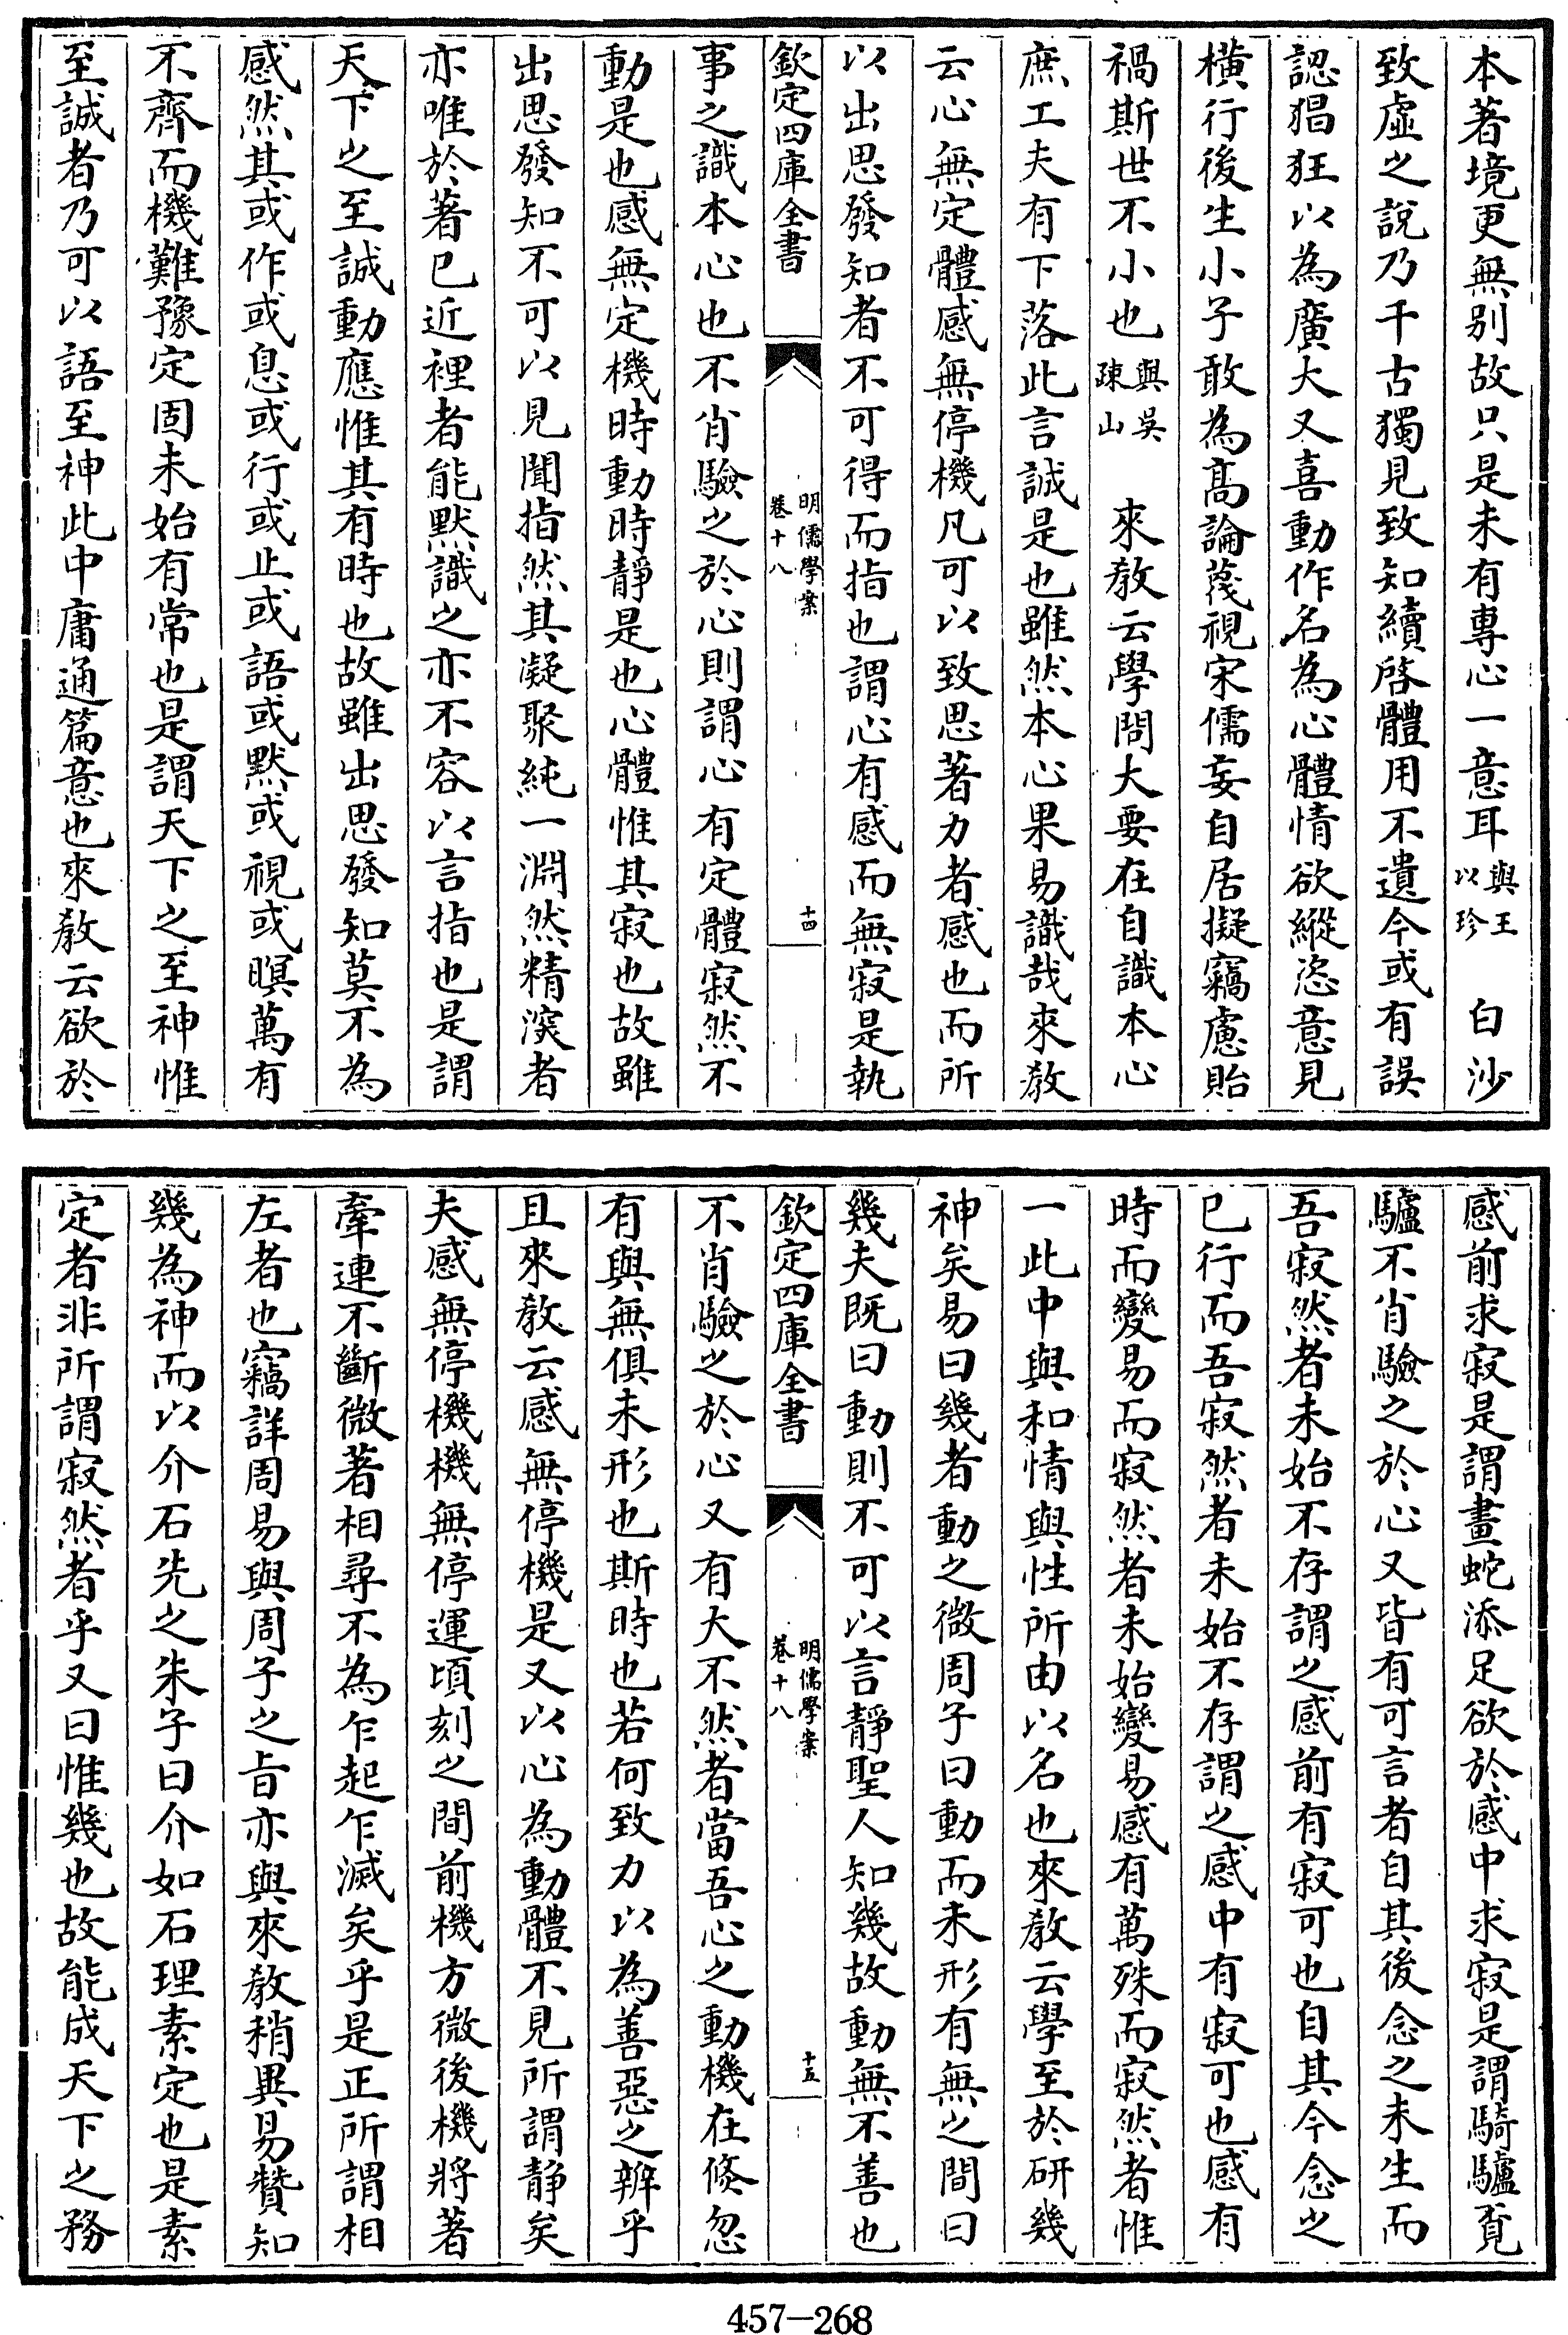 本著境更無別故只是未有專心一意耳與王以珍　白沙
致虛之說乃千古獨見致知續啓體用不遺今或有誤
認猖狂以為廣大又喜動作名為心體情欲縱恣意見
橫行後生小子敢為髙論蔑視宋儒妄自居擬竊慮貽
禍斯世不小也與吳疎山　來教云學問大要在自識本心
庶工夫有下落此言誠是也雖然本心果易識哉來教
云心無定體感無停機凡可以致思著力者感也而所
以出思發知者不可得而指也謂心有感而無寂是執
欽定四庫全書
明儒學案
卷十八
十四
事之識本心也不肖驗之於心則謂心有定體寂然不
動是也感無定機時動時靜是也心體惟其寂也故雖
出思發知不可以見聞指然其凝聚純一淵然精深者
亦唯於著已近裡者能默識之亦不容以言指也是謂
天下之至誠動應惟其有時也故雖出思發知莫不為
感然其或作或息或行或止或語或默或視或瞑萬有
不齊而機難豫定固未始有常也是謂天下之至神惟
至誠者乃可以語至神此中庸通篇意也來教云欲於
感前求寂是謂畫蛇添足欲於感中求寂是謂騎驢覔
驢不肖驗之於心又皆有可言者自其後念之未生而
吾寂然者未始不存謂之感前有寂可也自其今念之
已行而吾寂然者未始不存謂之感中有寂可也感有
時而變易而寂然者未始變易感有萬殊而寂然者惟
一此中與和情與性所由以名也來教云學至於研幾
神矣易曰幾者動之微周子曰動而未形有無之間曰
幾夫既曰動則不可以言靜聖人知幾故動無不善也
欽定四庫全書
明儒學案
卷十八
十五
不肖驗之於心又有大不然者當吾心之動機在倐忽
有與無俱未形也斯時也若何致力以為善惡之辨乎
且來教云感無停機是又以心為動體不見所謂静矣
夫感無停機機無停運頃刻之間前機方微後機將著
牽連不斷微著相尋不為乍起乍滅矣乎是正所謂相
左者也竊詳周易與周子之旨亦與來教稍異易贊知
幾為神而以介石先之朱子曰介如石理素定也是素
定者非所謂寂然者乎又曰惟幾也故能成天下之務
457—268